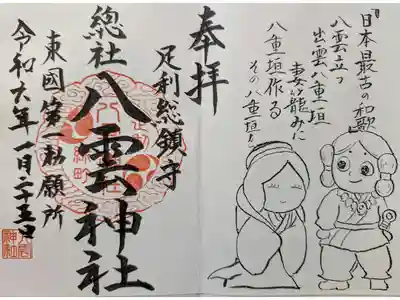 『日本最古の和歌』
八雲立つ
出雲八重垣
妻籠みに
八重垣作る
その八重垣を
奉拝
足利総鎮守
總社 八雲神社
東國第一祈願所
令和六年一月二十五日